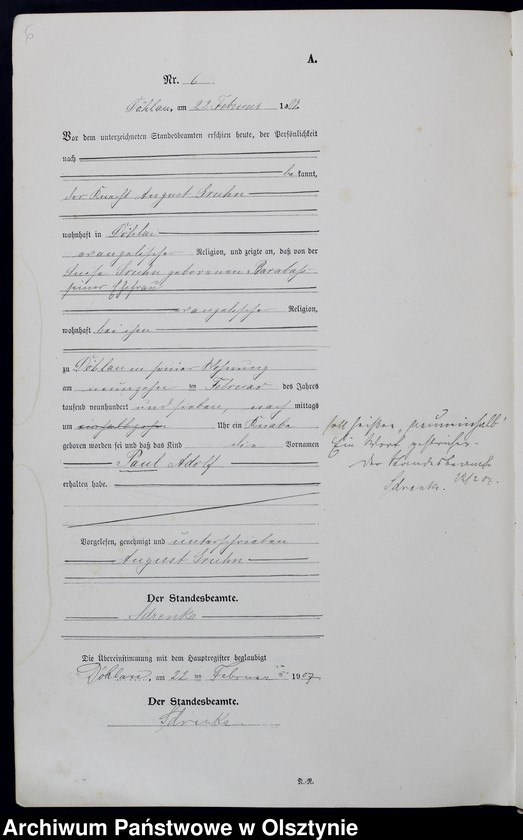 6
A.
Nr. 6
Döhlau, am 22 Februar 1907.
Vor dem unterzeichneten Standesbeamten erschien heute, der Persönlichkeit
nach
be kannt,
der Knecht August Gruhn
wohnhaft in Döhlau
evangelischer Religion, und zeigte an, daß von der
Gruhn geborenen
seiner Ehefrau
evangelischer Religion,
wohnhaft bei ihm
zu Döhlau in seiner Wohnung
am neunzehn ten Februar des Jahres
tausend neunhundert und sieben, nach mittags
um Uhr ein Knabe
geboren worden sei und daß das Kind die Vornamen
Paul Adolf
erhalten habe.
soll heißen „neuneinhalb"
Ein Wort gestrichen.
Der Standesbeamte
22/2 07.
Vorgelesen, genehmigt und unterschrieben
August Gruhn
Der Standesbeamte.
Die Übereinstimmung mit dem Hauptregister beglaubigt
Döhlau, am 22 ten Februar 1907
Der Standesbeamte.
Archiwum Państwowe w Olsztynie